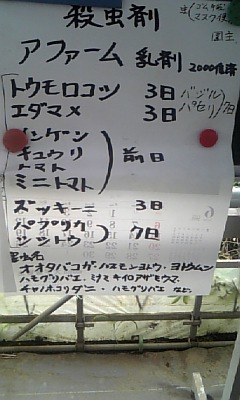 殺虫剤
ゴム手袋
マスク使
国主
アファーム 乳剤 2000倍液
トウモロコシ 3日 バジル
エダマメ 3日 パセリ 7日
インゲン
キュウリ 前日
トマト
ミニトマト
ズッキーニ 3日
パプリカ 7日
シシトウ
害虫名
オオタバコガ・ハスモンヨトウ・ヨトウムシ
ハモグリバエ、ミナミキイロアザミウマ、
チャノホコリダニ・ハモグリバエ など